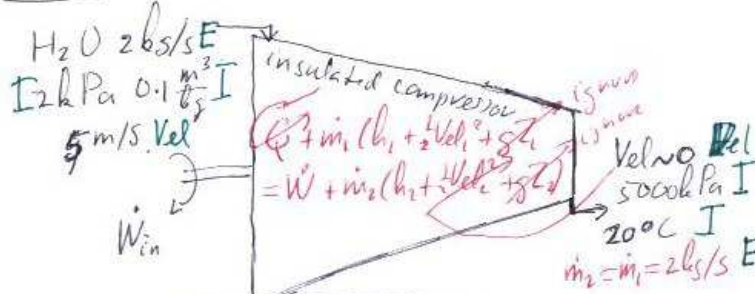 H₂O 2kg/s E
I 2kPa 0.1 m³/kg I
5 m/s Vel
Ẇin
insulated compressor
Q̇ + ṁ₁(h₁ + ½Vel₁² + gZ₁)
= Ẇ + ṁ₂(h₂ + ½Vel₂² + gZ₂)
ignore
ignore
Vel~0 Vel
5000kPa I
20°C I
ṁ₂ = ṁ₁ = 2kg/s E